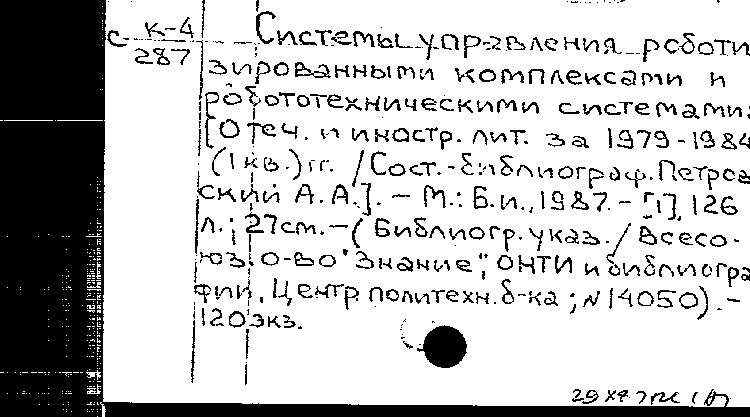 с К-4
287
Системы управления роботи
зированными комплексами и
робототехническими системами:
[Отеч. и иностр. лит. за 1979-1984
(1 кв.) гг. / Сост.-библиограф. Петров
ский А. А.]. – М.: Б.и., 1987. – [1], 126
л.; 27см. – (Библиогр. указ. / Всесо-
юз. о-во "Знание", ОНТИ и библиогра
фии, Центр. политехн. б-ка; N 14050). –
120экз.